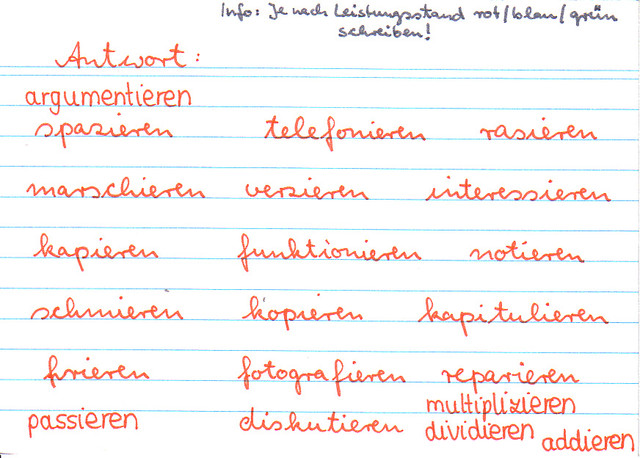 Info: Je nach Leistungsstand rot/blau/grün
schreiben!
Antwort:
argumentieren
spazieren telefonieren rasieren
marschieren verzieren interessieren
kapieren funktionieren notieren
schmieren kopieren kapitulieren
frieren fotografieren reparieren
multiplizieren
passieren diskutieren dividieren addieren